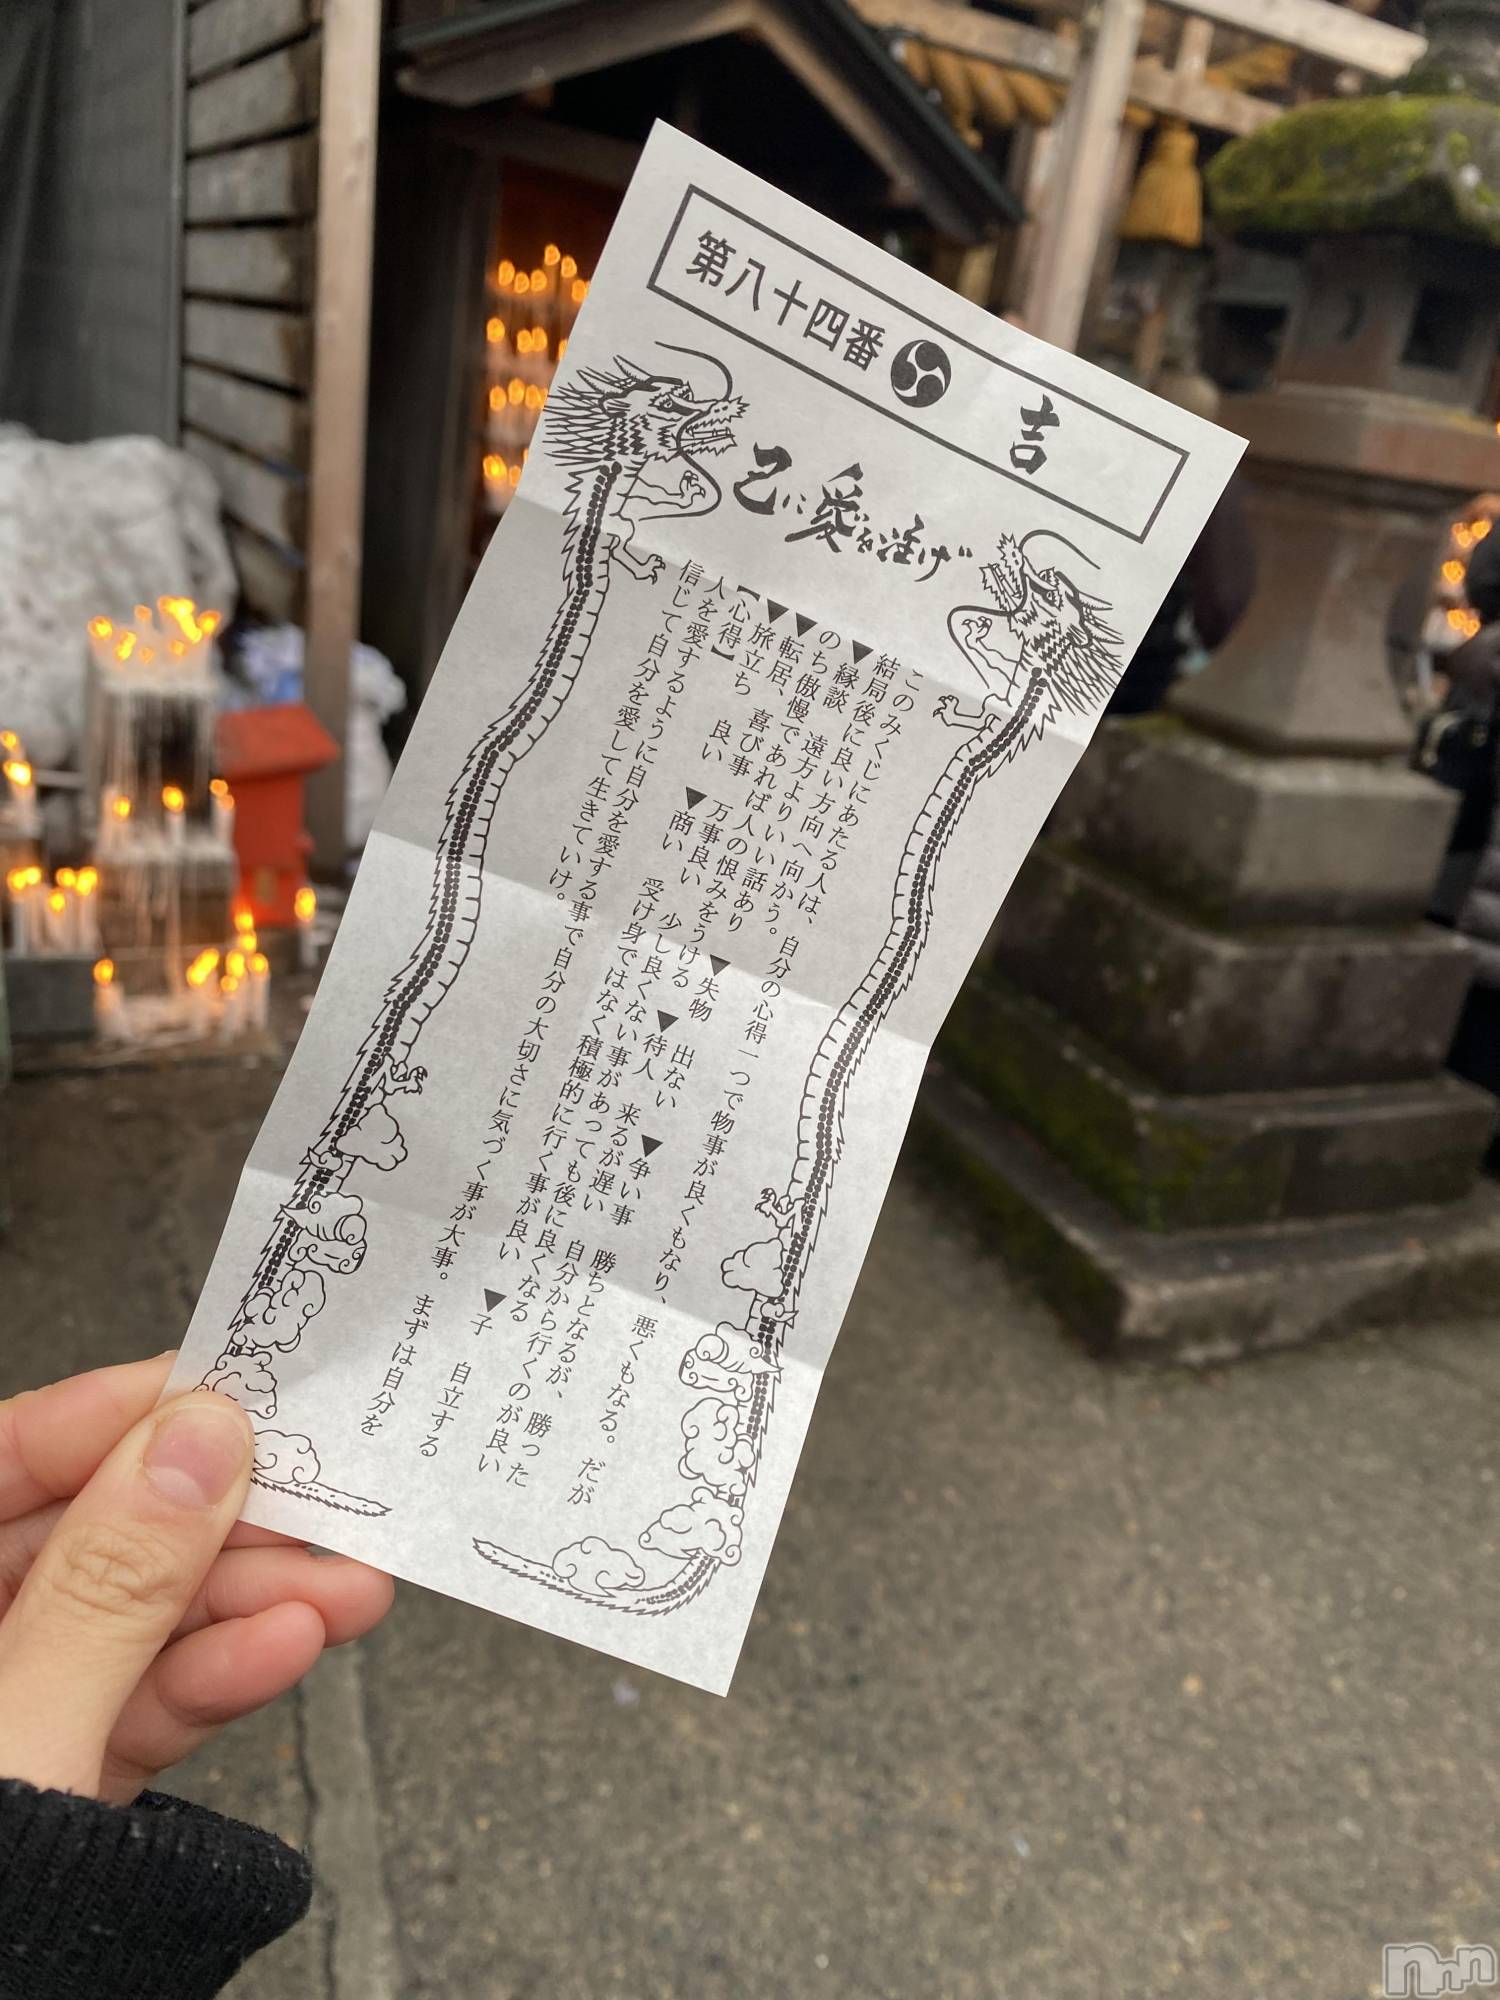 第八十四番 吉
己に愛を注げ
このみくじにあたる人は、自分の心得一つで物事が良くもなり、悪くもなる。だが
結局後に良い方向へ向かう。
▼縁談 遠方よりいい話あり ▼失物 出ない ▼争い事 勝ちとなるが、勝った
のち傲慢であれば人の恨みをうける ▼待人 来るが遅い 自分から行くのが良い
▼転居、喜び事 万事良い 少し良くない事があっても後に良くなる
▼旅立ち 良い ▼商い 受け身ではなく積極的に行く事が良い ▼子 自立する
【心得】
人を愛するように自分を愛する事で自分の大切さに気づく事が大事。まずは自分を
信じて自分を愛して生きていけ。